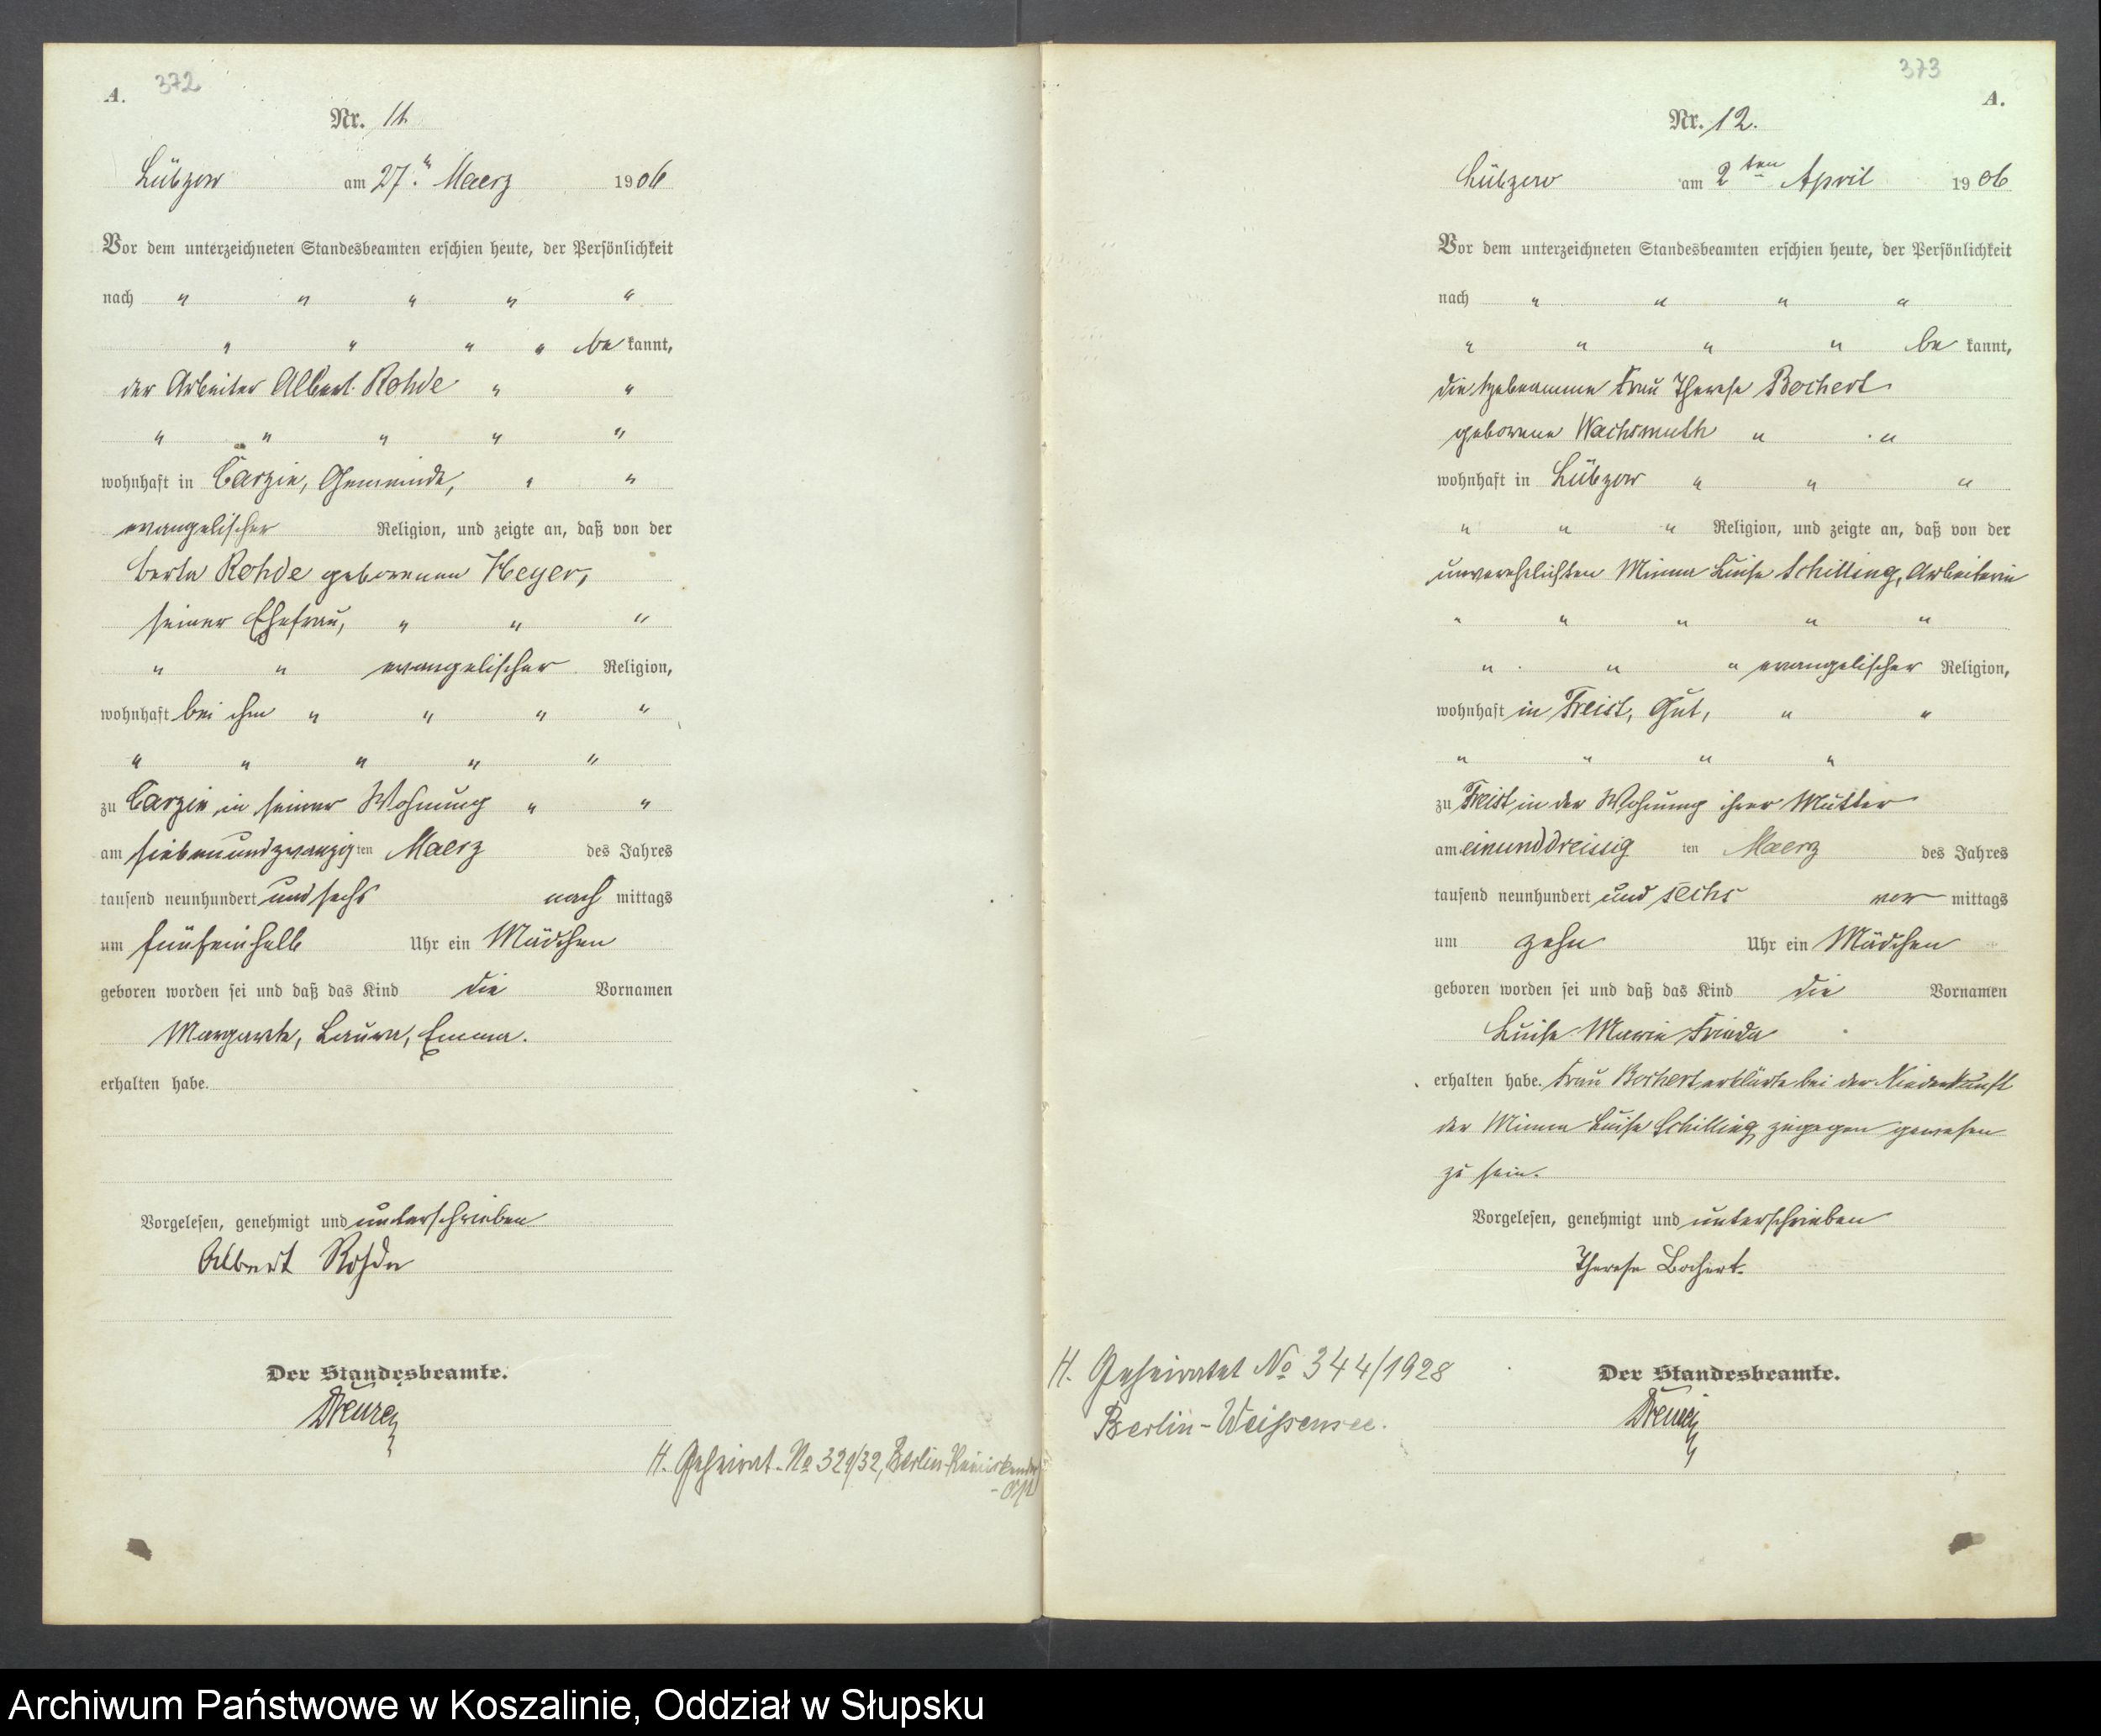 372
A.
Nr. 11.
Lübzow am 27.ten Maerz 1906
Vor dem unterzeichneten Standesbeamten erschien heute, der Persönlichkeit
nach " " " " "
" " " " be kannt,
der Arbeiter Albert Rohde " "
" " " " "
wohnhaft in Carzin, Gemeinde, " "
evangelischer Religion, und zeigte an, daß von der
Berta Rohde geborenen Heyer,
seiner Ehefrau, " " "
" " evangelischer Religion,
wohnhaft bei ihm " " " "
" " " " "
zu Carzin in seiner Wohnung " "
am siebenundzwanzig ten Maerz des Jahres
tausend neunhundert und sechs nach mittags
um fünfeinhalb Uhr ein Mädchen
geboren worden sei und daß das Kind die Vornamen
Margarete, Laura, Emma.
erhalten habe.
Vorgelesen, genehmigt und unterschrieben
Albert Rohde
Der Standesbeamte.
H. Geheirat. No 329/32, Berlin-Reinickendorf
373
A.
Nr. 12.
Lübzow am 2ten April 1906
Vor dem unterzeichneten Standesbeamten erschien heute, der Persönlichkeit
nach " " " "
" " " " be kannt,
die Hebeamme Frau Therese Bochert
geborene Wachsmuth " "
wohnhaft in Lübzow " " "
" " " Religion, und zeigte an, daß von der
unverehelichten Minna Luise Schilling, Arbeiterin
" " " " "
" " " evangelischer Religion,
wohnhaft in Freist, Gut, " "
" " " "
zu Freist in der Wohnung ihrer Mutter
am einunddreissig ten Maerz des Jahres
tausend neunhundert und sechs vor mittags
um zehn Uhr ein Mädchen
geboren worden sei und daß das Kind die Vornamen
Luise Marie Frieda
erhalten habe. Frau Bochert erklärte bei der Niederkunft
der Minna Luise Schilling zugegen gewesen
zu sein.
Vorgelesen, genehmigt und unterschrieben
Therese Bochert.
Der Standesbeamte.
H. Geheiratet No 344/1928
Berlin-Weißensee.
Archiwum Państwowe w Koszalinie, Oddział w Słupsku